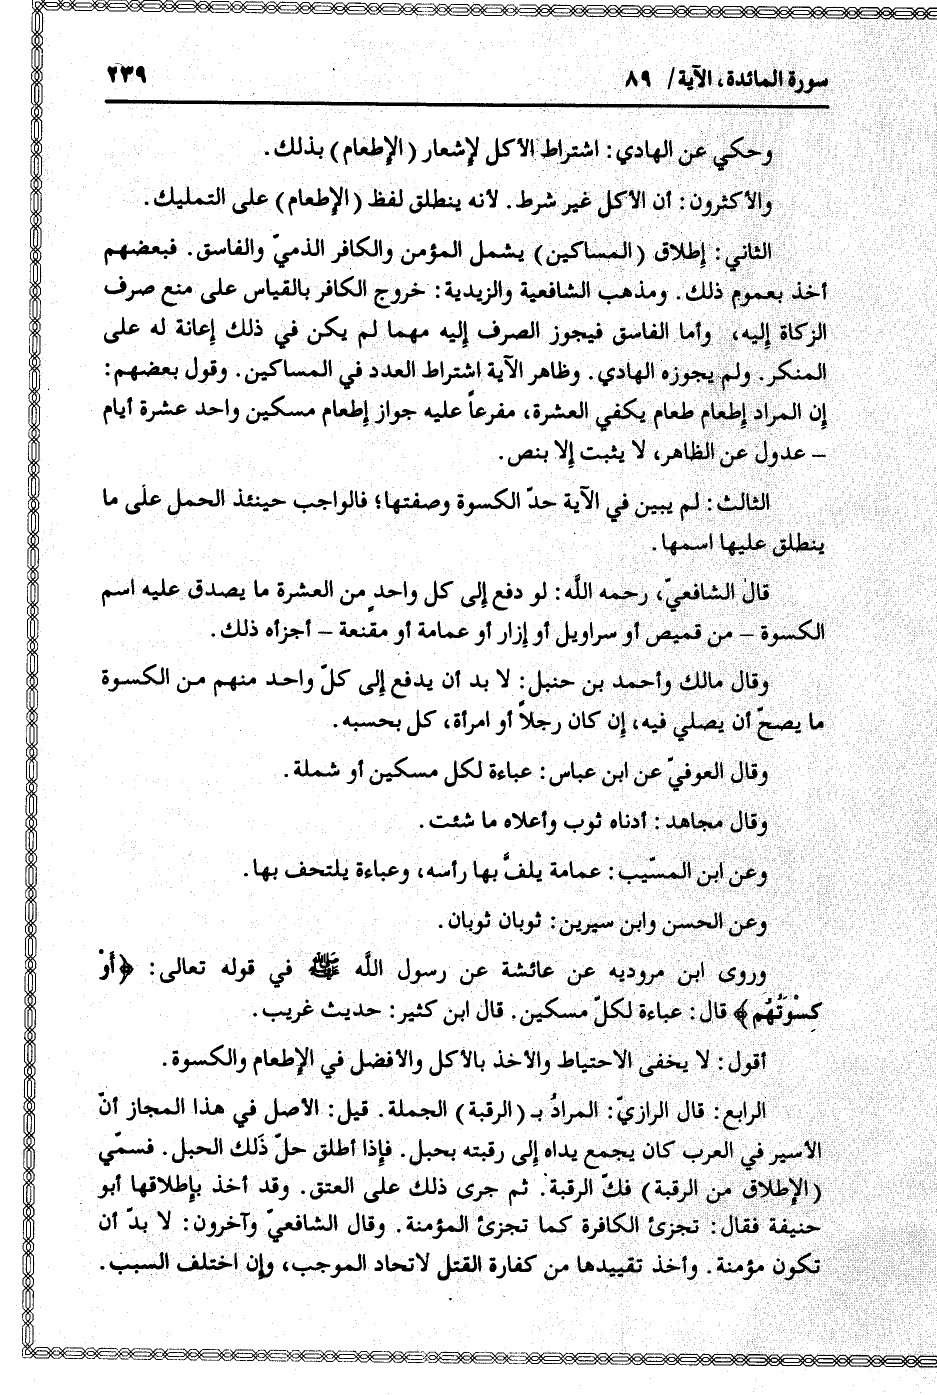 سورة المائدة، الآية/ ٨٩
٢٣٩
وحكي عن الهادي: اشتراط الأكل لإشعار (الإطعام) بذلك.
والأكثرون: أن الأكل غير شرط. لأنه ينطلق لفظ (الإطعام) على التمليك.
الثاني: إطلاق (المساكين) يشمل المؤمن والكافر الذميّ والفاسق. فبعضهم
أخذ بعموم ذلك. ومذهب الشافعية والزيدية: خروج الكافر بالقياس على منع صرف
الزكاة إليه، وأما الفاسق فيجوز الصرف إليه مهما لم يكن في ذلك إعانة له على
المنكر. ولم يجوزه الهادي. وظاهر الآية اشتراط العدد في المساكين. وقول بعضهم:
إن المراد إطعام طعام يكفي العشرة، مفرعاً عليه جواز إطعام مسكين واحد عشرة أيام
– عدول عن الظاهر، لا يثبت إلا بنص.
الثالث: لم يبين في الآية حدّ الكسوة وصفتها؛ فالواجب حينئذ الحمل على ما
ينطلق عليها اسمها.
قال الشافعيّ، رحمه اللَّه: لو دفع إلى كل واحدٍ من العشرة ما يصدق عليه اسم
الكسوة – من قميص أو سراويل أو إزار أو عمامة أو مقنعة – أجزأه ذلك.
وقال مالك وأحمد بن حنبل: لا بد أن يدفع إلى كلّ واحد منهم من الكسوة
ما يصحّ أن يصلي فيه، إن كان رجلاً أو امرأة، كل بحسبه.
وقال العوفيّ عن ابن عباس: عباءة لكل مسكين أو شملة.
وقال مجاهد: أدناه ثوب وأعلاه ما شئت.
وعن ابن المسّيب: عمامة يلفُّ بها رأسه، وعباءة يلتحف بها.
وعن الحسن وابن سيرين: ثوبان ثوبان.
وروى ابن مروديه عن عائشة عن رسول اللَّه ﷺ في قوله تعالى: ﴿أَوْ
كِسْوَتُهُم﴾ قال: عباءة لكلّ مسكين. قال ابن كثير: حديث غريب.
أقول: لا يخفى الاحتياط والأخذ بالأكل والأفضل في الإطعام والكسوة.
الرابع: قال الرازيّ: المرادُ بـ (الرقبة) الجملة. قيل: الأصل في هذا المجاز أنّ
الأسير في العرب كان يجمع يداه إلى رقبته بحبل. فإذا أطلق حلّ ذَلك الحبل. فسمّي
(الإطلاق من الرقبة) فكّ الرقبة. ثم جرى ذلك على العتق. وقد أخذ بإطلاقها أبو
حنيفة فقال: تجزئ الكافرة كما تجزئ المؤمنة. وقال الشافعيّ وآخرون: لا بدّ أن
تكون مؤمنة. وأخذ تقييدها من كفارة القتل لاتحاد الموجب، وإن اختلف السبب.